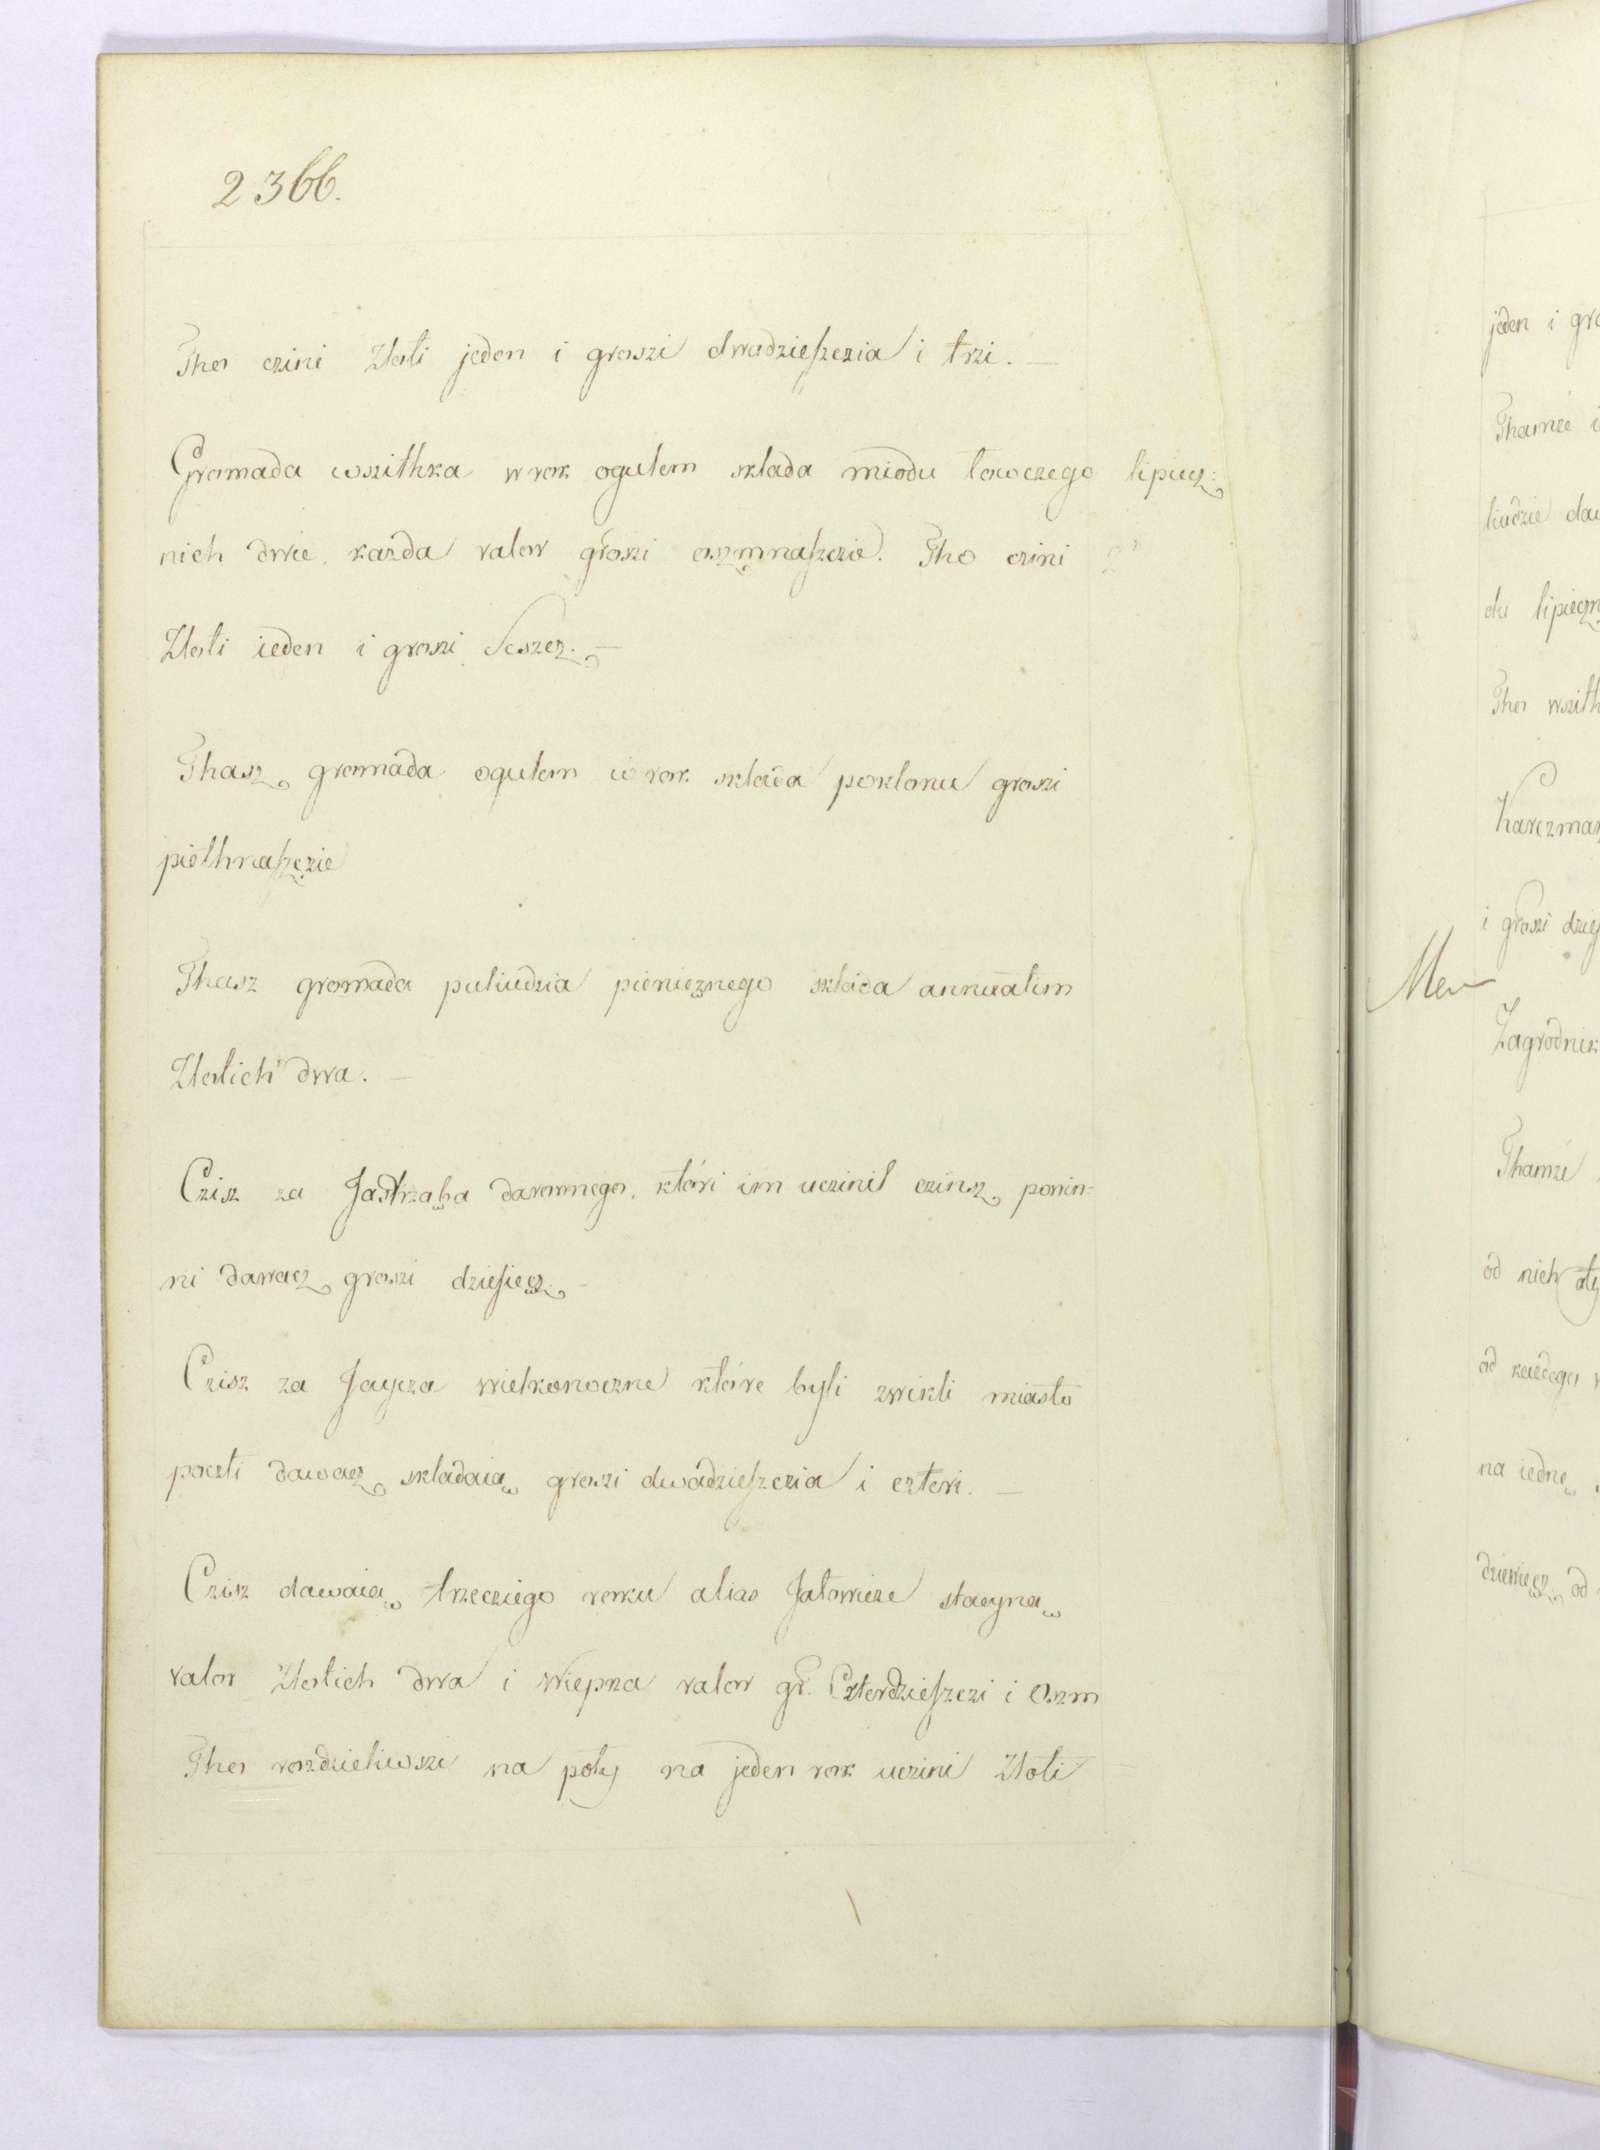 2366.
Tho czini Zloti jeden i groszi dwadzieszczia i trzi. —
Gromada wszithka w rok ogulem sklada miodu lowczego lipiecz=
nich dwie, kazda valor groszi oszmnaszczie. Tho czini
Zloti ieden i groszi Seszcz. —
Thasz gromada ogulem w rok sklada poklonu groszi
piethnaszczie
Thasz gromada puliudzia pienieznego sklada annuatim
Zlotich dwa. —
Czisz za Jastrząba darownego, któri im uczinil czinsz powin=
ni dawacz groszi dziesięcz. —
Czisz za Jaycza wielkonoczne które byli zwikli miasto
poczti dawacz skladaią groszi dwadzieszczia i czteri. —
Czisz dawaią trzecziego roku alias Jałowicze stacyną
valor Zlotich dwa i Wieprza valor gr. Czterdzieszczi i Oszm
Tho rozdzieliwszi na poły na jeden rok uczini Zloti
jeden i
Thamże
liudzie
Tho
Zagrodnik
Thamże
od nich
od każdego
na iednę
dziewięcz od